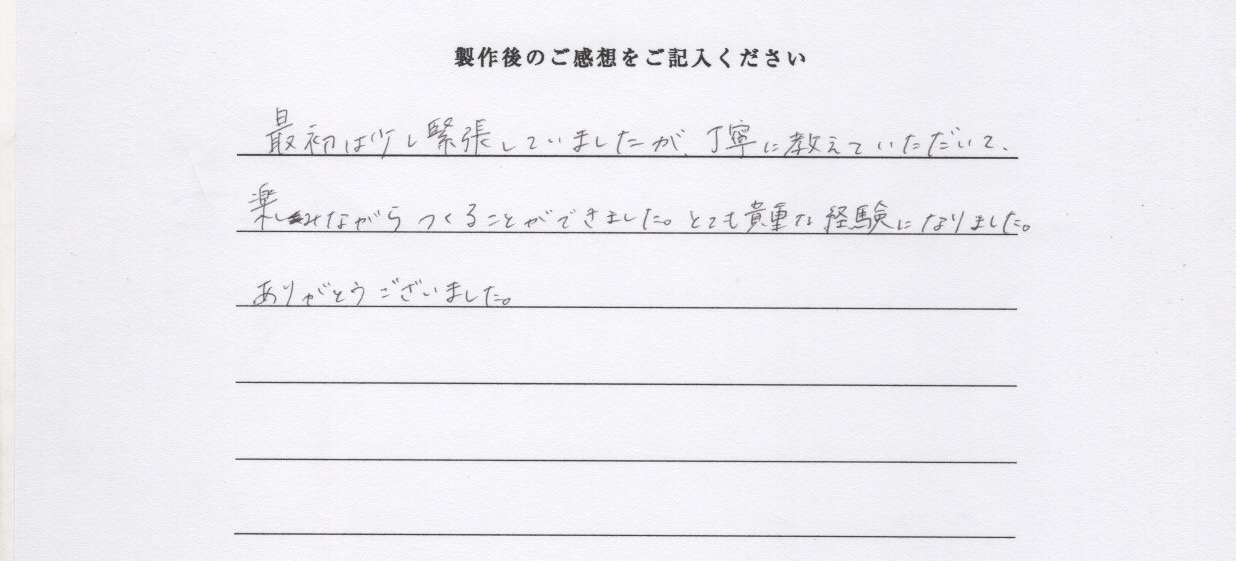 製作後のご感想をご記入ください
最初は少し緊張していましたが、丁寧に教えていただいて、
楽しみながらつくることができました。とても貴重な経験になりました。
ありがとうございました。